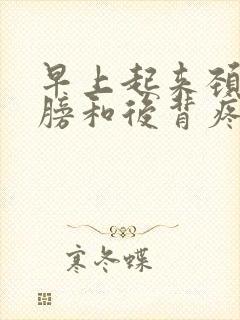 早上起来颈
膀和後背疼
寒冬蝶